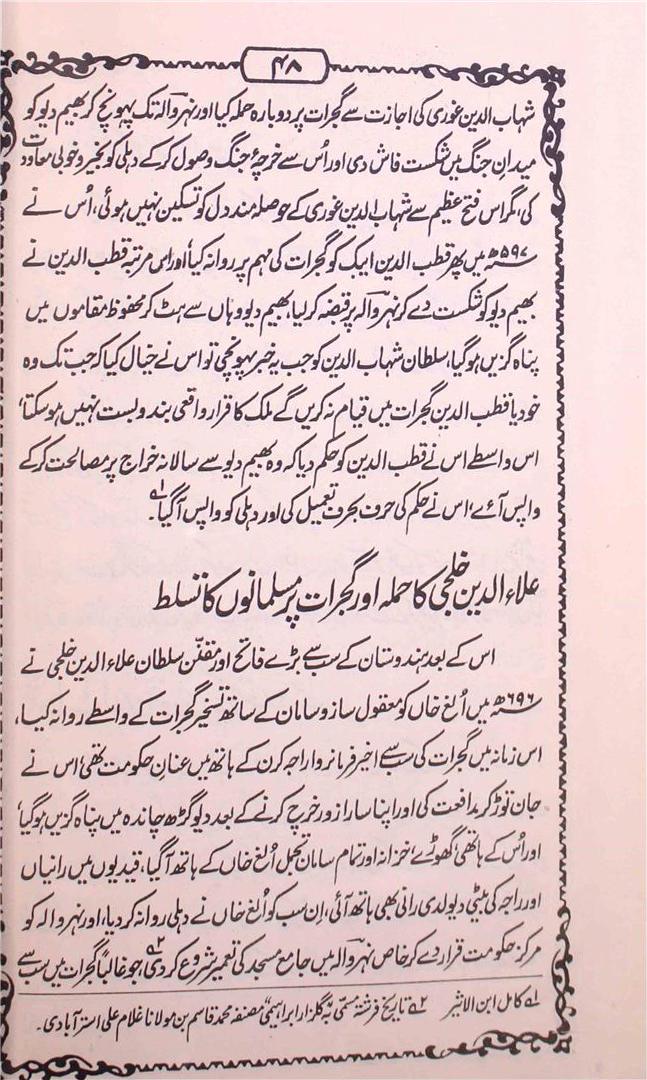 ۴۸
شہاب الدین غوری کی اجازت سے گجرات پر دوبارہ حملہ کیا اور نہروالہ تک پہونچ کر بھیم دیو کو
میدانِ جنگ میں شکست فاش دی اور اُس سے خرچۂ جنگ وصول کرکے دہلی کو بخیر و خوبی معاودت
کی، مگر اس فتح عظیم سے شہاب الدین غوری کے حوصلہ مند دل کو تسکین نہیں ہوئی، اُس نے
۵۹۷ھ میں پھر قطب الدین ایبک کو گجرات کی مہم پر روانہ کیا، اور اس مرتبہ قطب الدین نے
بھیم دیو کو شکست دے کر نہروالہ پر قبضہ کر لیا، بھیم دیو وہاں سے ہٹ کر محفوظ مقاموں میں
پناہ گزیں ہوگیا، سلطان شہاب الدین کو جب یہ خبر پہونچی تو اس نے خیال کیا کہ جب تک وہ
خود یا قطب الدین گجرات میں قیام نہ کریں گے ملک کا قرار واقعی بندوبست نہیں ہوسکتا،
اس واسطے اس نے قطب الدین کو حکم دیا کہ وہ بھیم دیو سے سالانہ خراج پر مصالحت کرکے
واپس آئے، اس نے حکم کی حرف بحرف تعمیل کی اور دہلی کو واپس آگیا۔؎۱
علاء الدین خلجی کا حملہ اور گجرات پر مسلمانوں کا تسلط
اس کے بعد ہندوستان کے سب سے بڑے فاتح اور مقنّن سلطان علاء الدین خلجی نے
۶۹۶ھ میں اُلغ خاں کو معقول ساز و سامان کے ساتھ تسخیر گجرات کے واسطے روانہ کیا،
اس زمانہ میں گجرات کی سب سے اخیر فرمانروا راجہ کرن کے ہاتھ میں عنانِ حکومت تھی، اس نے
جان توڑ کر مدافعت کی اور اپنا سارا زور خرچ کرنے کے بعد دیوگڑھ چاندہ میں پناہ گزیں ہوگیا،
اور اُس کے ہاتھی، گھوڑے، خزانہ اور تمام سامان تجمل اُلغ خاں کے ہاتھ آگیا، قیدیوں میں رانیاں
اور راجہ کی بیٹی دیولدی رانی بھی ہاتھ آئی، اِن سب کو اُلغ خاں نے دہلی روانہ کردیا، اور نہروالہ کو
مرکز حکومت قرار دے کر خاص نہروالہ میں جامع مسجد کی تعمیر شروع کردی؎۲، جو غالباً گجرات میں سب سے
؎۱ کامل ابن الاثیر ؎۲ تاریخ فرشتہ مسمّی بہ گلزار ابراہیمی، مصنفہ محمد قاسم بن مولانا غلام علی استرآبادی۔